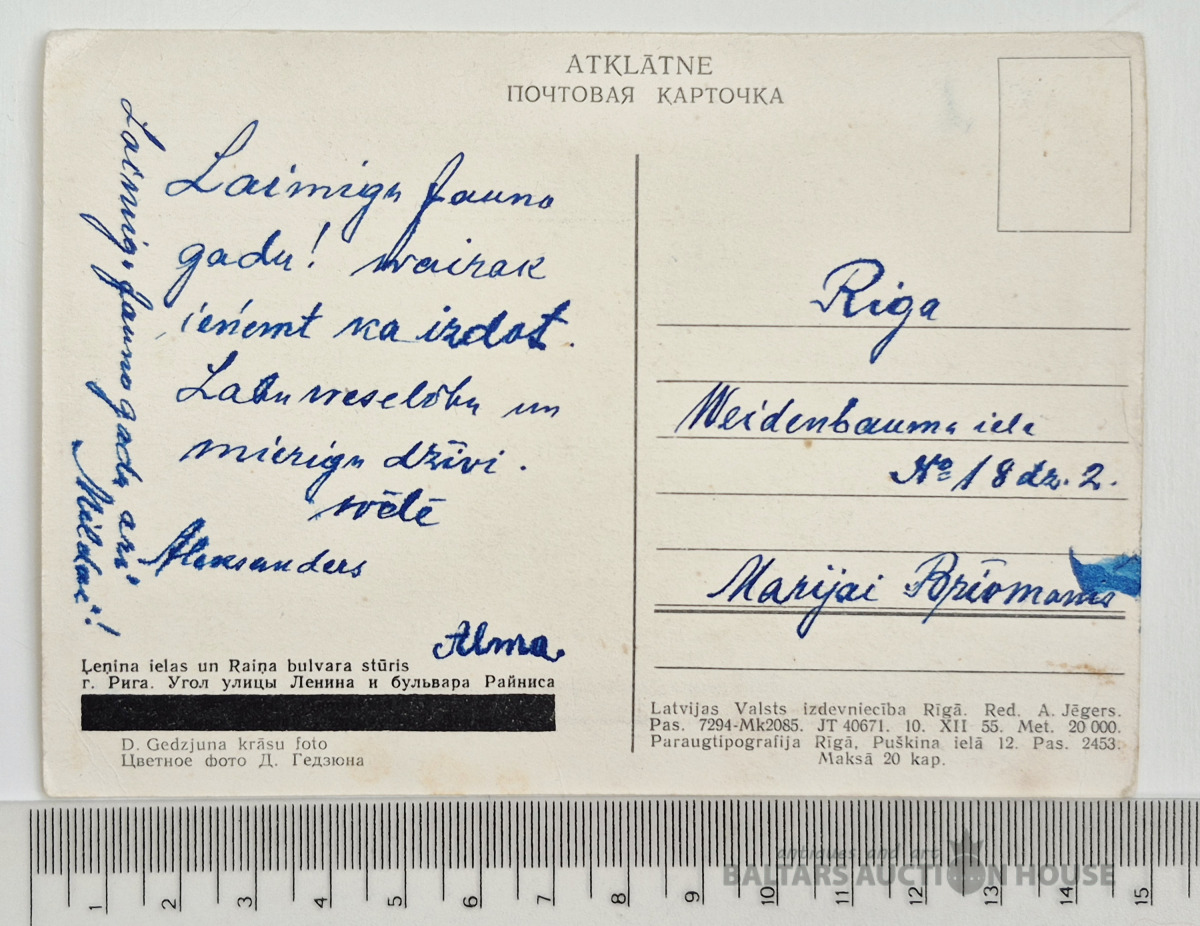 ATKLĀTNE
ПОЧТОВАЯ КАРТОЧКА
Laimigu Jauno
gadu! wairak
ieņemt ka izdot.
Labu weselību un
mierigu dzīvi.
wēlē
Aleksanders
Alma
Laimigu Jauno gadu arī
Mildai!
Riga
Weidenbauma iela
No 18 dz. 2.
Marijai
Ļeņina ielas un Raiņa bulvara stūris
г. Рига. Угол улицы Ленина и бульвара Райниса
D. Gedzjuna krāsu foto
Цветное фото Д. Гедзюна
Latvijas Valsts izdevniecība Rīgā. Red. A. Jēgers.
Pas. 7294-Mk2085. JT 40671. 10. XII 55. Met. 20 000.
Paraugtipografija Rīgā, Puškina ielā 12. Pas. 2453.
Maksā 20 kap.
antiques and art
BALTARS AUCTION HOUSE
1 2 3 4 5 6 7 8 9 10 11 12 13 14 15